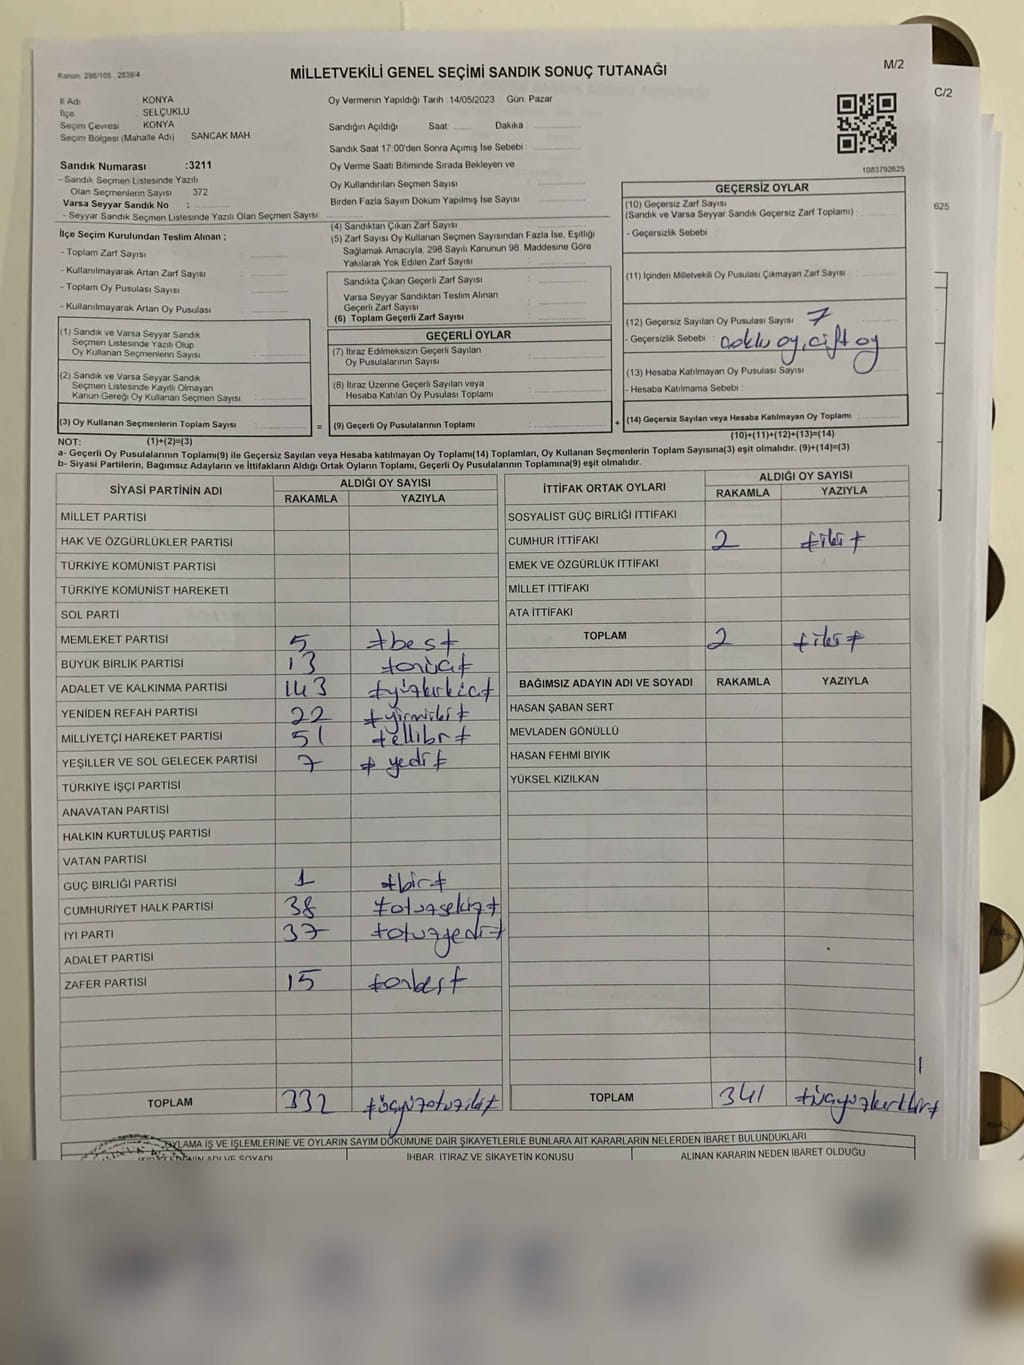 Kanun: 298/105 , 2839/4
MİLLETVEKİLİ GENEL SEÇİMİ SANDIK SONUÇ TUTANAĞI
M/2
C/2
İl Adı KONYA
İlçe : SELÇUKLU
Seçim Çevresi KONYA
Seçim Bölgesi (Mahalle Adı) SANCAK MAH
Sandık Numarası :3211
- Sandık Seçmen Listesinde Yazılı
Olan Seçmenlerin Sayısı 372
Varsa Seyyar Sandık No :
- Seyyar Sandık Seçmen Listesinde Yazılı Olan Seçmen Sayısı :
Oy Vermenin Yapıldığı Tarih : 14/05/2023 Gün: Pazar
Sandığın Açıldığı Saat: Dakika :
Sandık Saat 17:00'den Sonra Açımış İse Sebebi :
Oy Verme Saati Bitiminde Sırada Bekleyen ve
Oy Kullandırılan Seçmen Sayısı :
Birden Fazla Sayım Döküm Yapılmış İse Sayısı :
1083792625
625
İlçe Seçim Kurulundan Teslim Alınan :
- Toplam Zarf Sayısı :
- Kullanılmayarak Artan Zarf Sayısı :
- Toplam Oy Pusulası Sayısı :
- Kullanılmayarak Artan Oy Pusulası :
(1) Sandık ve Varsa Seyyar Sandık
Seçmen Listesinde Yazılı Olup
Oy Kullanan Seçmenlerin Sayısı :
(2) Sandık ve Varsa Seyyar Sandık
Seçmen Listesinde Kayıtlı Olmayan
Kanun Gereği Oy Kullanan Seçmen Sayısı :
(3) Oy Kullanan Seçmenlerin Toplam Sayısı :
=
(4) Sandıktan Çıkan Zarf Sayısı :
(5) Zarf Sayısı Oy Kullanan Seçmen Sayısından Fazla İse, Eşitliği
Sağlamak Amacıyla, 298 Sayılı Kanunun 98. Maddesine Göre
Yakılarak Yok Edilen Zarf Sayısı :
Sandıkta Çıkan Geçerli Zarf Sayısı :
Varsa Seyyar Sandıktan Teslim Alınan
Geçerli Zarf Sayısı :
(6) Toplam Geçerli Zarf Sayısı :
GEÇERLİ OYLAR
(7) İtiraz Edilmeksizin Geçerli Sayılan
Oy Pusulalarının Sayısı :
(8) İtiraz Üzerine Geçerli Sayılan veya
Hesaba Katılan Oy Pusulası Toplamı :
(9) Geçerli Oy Pusulalarının Toplamı :
+
GEÇERSİZ OYLAR
(10) Geçersiz Zarf Sayısı
(Sandık ve Varsa Seyyar Sandık Geçersiz Zarf Toplamı) :
- Geçersizlik Sebebi :
(11) İçinden Milletvekili Oy Pusulası Çıkmayan Zarf Sayısı :
(12) Geçersiz Sayılan Oy Pusulası Sayısı : 7
- Geçersizlik Sebebi : çoklu oy, çift oy
(13) Hesaba Katılmayan Oy Pusulası Sayısı :
- Hesaba Katılmama Sebebi :
(14) Geçersiz Sayılan veya Hesaba Katılmayan Oy Toplamı :
NOT: (1)+(2)=(3)
(10)+(11)+(12)+(13)=(14)
a- Geçerli Oy Pusulalarının Toplamı(9) ile Geçersiz Sayılan veya Hesaba katılmayan Oy Toplamı(14) Toplamları, Oy Kullanan Seçmenlerin Toplam Sayısına(3) eşit olmalıdır. (9)+(14)=(3)
b- Siyasi Partilerin, Bağımsız Adayların ve İttifakların Aldığı Ortak Oyların Toplamı, Geçerli Oy Pusulalarının Toplamına(9) eşit olmalıdır.
SİYASİ PARTİNİN ADI ALDIĞI OY SAYISI
RAKAMLA YAZIYLA
MİLLET PARTİSİ
HAK VE ÖZGÜRLÜKLER PARTİSİ
TÜRKİYE KOMÜNİST PARTİSİ
TÜRKİYE KOMÜNİST HAREKETİ
SOL PARTİ
MEMLEKET PARTİSİ 5 ≠beş≠
BÜYÜK BİRLİK PARTİSİ 13 ≠onüç≠
ADALET VE KALKINMA PARTİSİ 143 ≠yüzkırküç≠
YENİDEN REFAH PARTİSİ 22 ≠yirmiiki≠
MİLLİYETÇİ HAREKET PARTİSİ 51 ≠ellibir≠
YEŞİLLER VE SOL GELECEK PARTİSİ 7 ≠yedi≠
TÜRKİYE İŞÇİ PARTİSİ
ANAVATAN PARTİSİ
HALKIN KURTULUŞ PARTİSİ
VATAN PARTİSİ
GÜÇ BİRLİĞİ PARTİSİ 1 ≠bir≠
CUMHURİYET HALK PARTİSİ 38 ≠otuzsekiz≠
İYİ PARTİ 37 ≠otuzyedi≠
ADALET PARTİSİ
ZAFER PARTİSİ 15 ≠onbeş≠
TOPLAM 332 ≠üçyüzotuziki≠
İTTİFAK ORTAK OYLARI ALDIĞI OY SAYISI
RAKAMLA YAZIYLA
SOSYALİST GÜÇ BİRLİĞİ İTTİFAKI
CUMHUR İTTİFAKI 2 ≠iki≠
EMEK VE ÖZGÜRLÜK İTTİFAKI
MİLLET İTTİFAKI
ATA İTTİFAKI
TOPLAM 2 ≠iki≠
BAĞIMSIZ ADAYIN ADI VE SOYADI RAKAMLA YAZIYLA
HASAN ŞABAN SERT
MEVLADEN GÖNÜLLÜ
HASAN FEHMİ BIYIK
YÜKSEL KIZILKAN
TOPLAM 341 ≠üçyüzkırkbir≠
OYLAMA İŞ VE İŞLEMLERİNE VE OYLARIN SAYIM DÖKÜMÜNE DAİR ŞİKAYETLERLE BUNLARA AİT KARARLARIN NELERDEN İBARET BULUNDUKLARI
ADI VE SOYADI İHBAR, İTİRAZ VE ŞİKAYETİN KONUSU ALINAN KARARIN NEDEN İBARET OLDUĞU